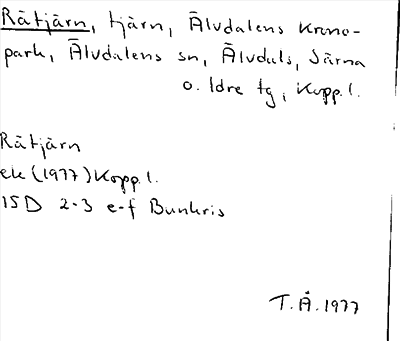 Råtjärn, tjärn, Älvdalens krono-
park, Älvdalens sn, Älvdals, Särna
o. Idre tg, Kopp. l.
Råtjärn
ek (1977) Kopp. l.
15D 2-3 e-f Bunkris
T.Å. 1977